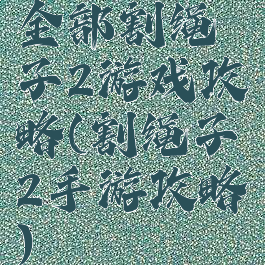 全部割绳
子2游戏攻
略(割绳子
2手游攻略
)